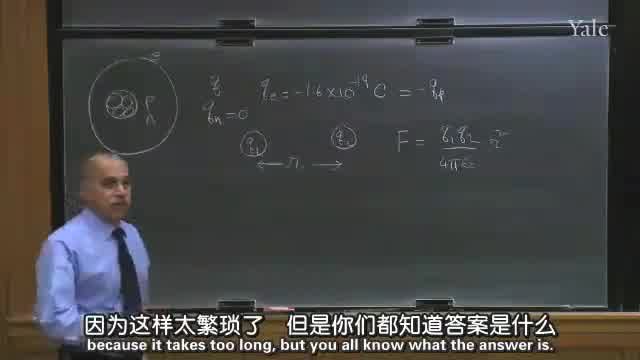 Yale
e
P
n
q qe = -1.6 × 10⁻¹⁹ C = -qp
qn = 0
q1 q2
← r →
F = q1 q2 / 4πε
因为这样太繁琐了 但是你们都知道答案是什么
because it takes too long, but you all know what the answer is.